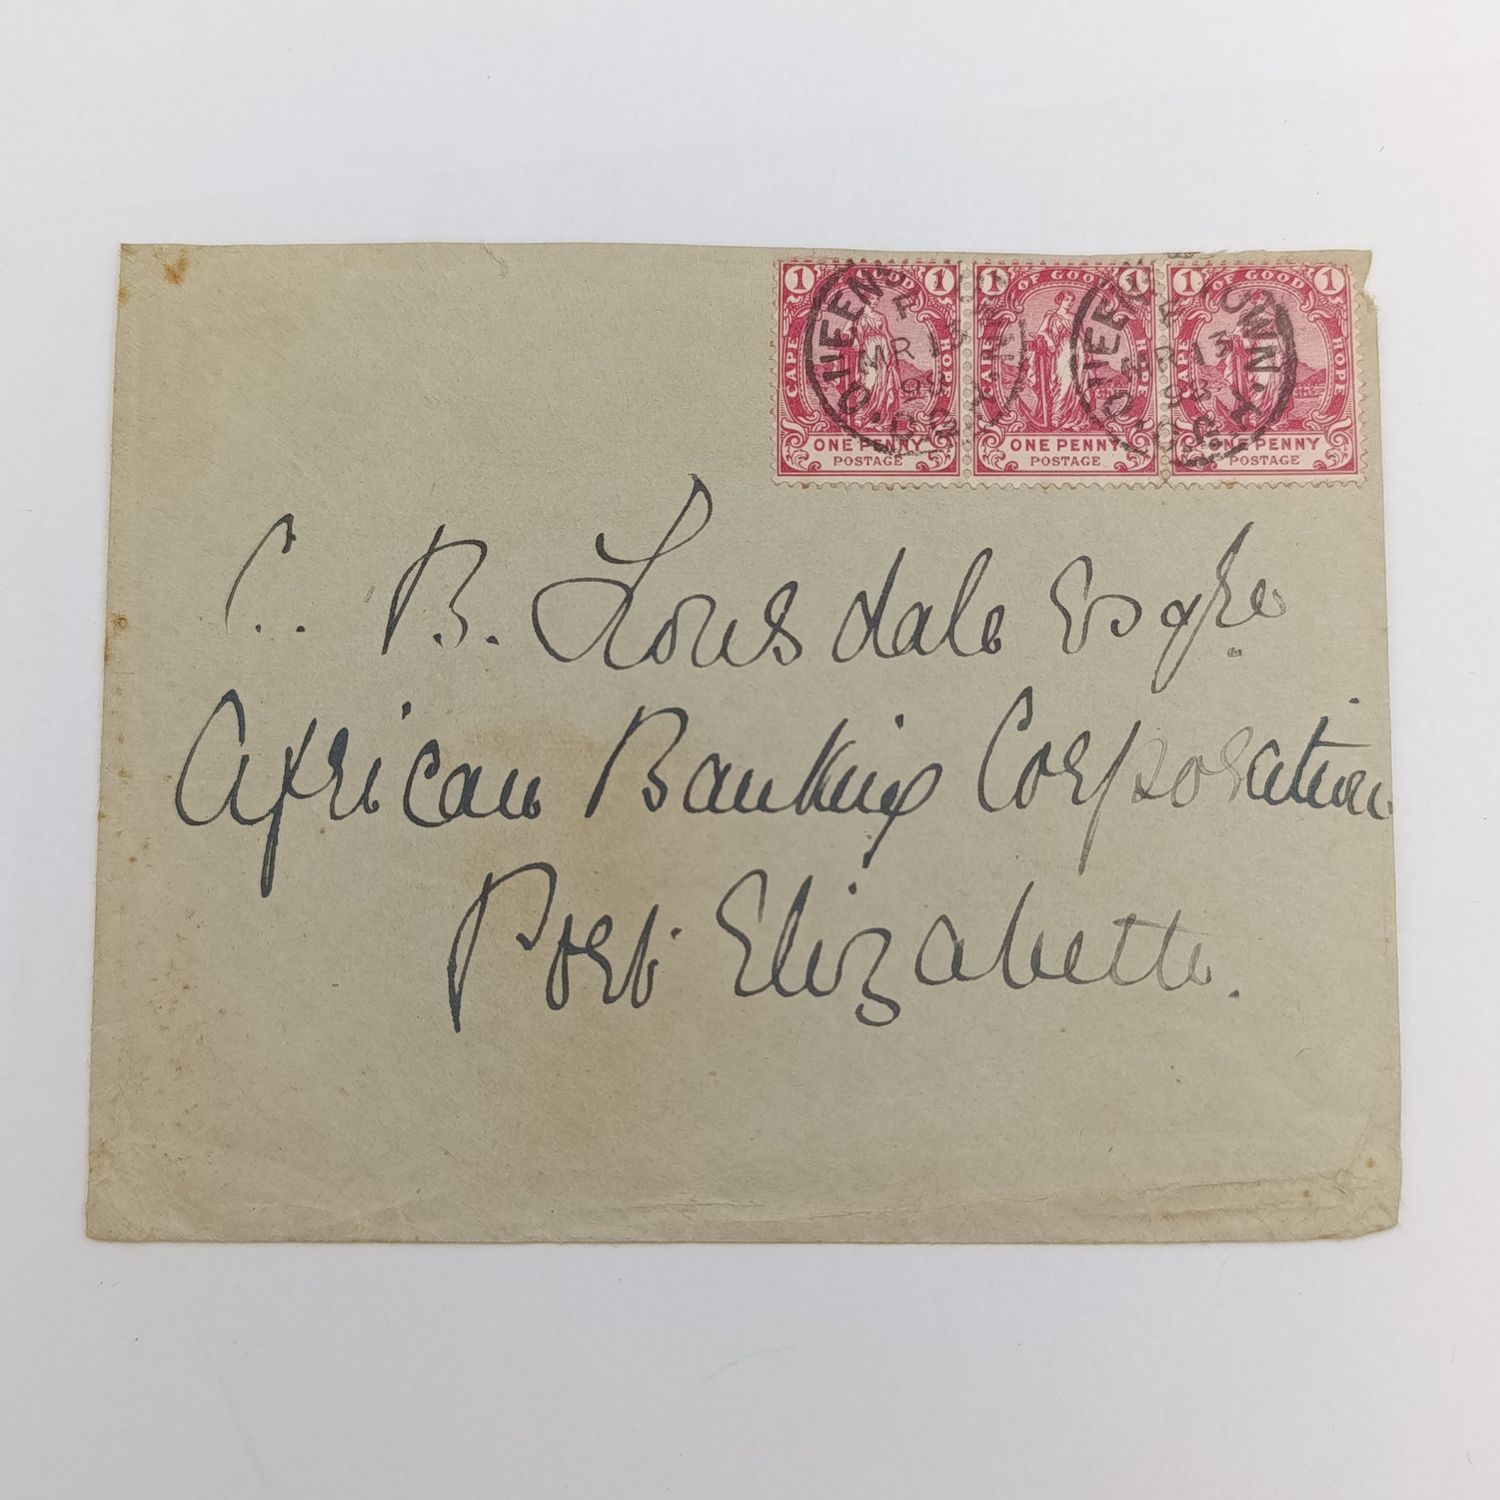 1 OF GOOD 1 1 OF GOOD 1 1 OF GOOD 1
CAPE HOPE CAPE HOPE CAPE HOPE
ONE PENNY ONE PENNY ONE PENNY
POSTAGE POSTAGE POSTAGE
QUEENS
MR 13
98
QUEENSTOWN
MR 13
98
C. B. Lonsdale Esqre
African Banking Corporation
Port Elizabeth.